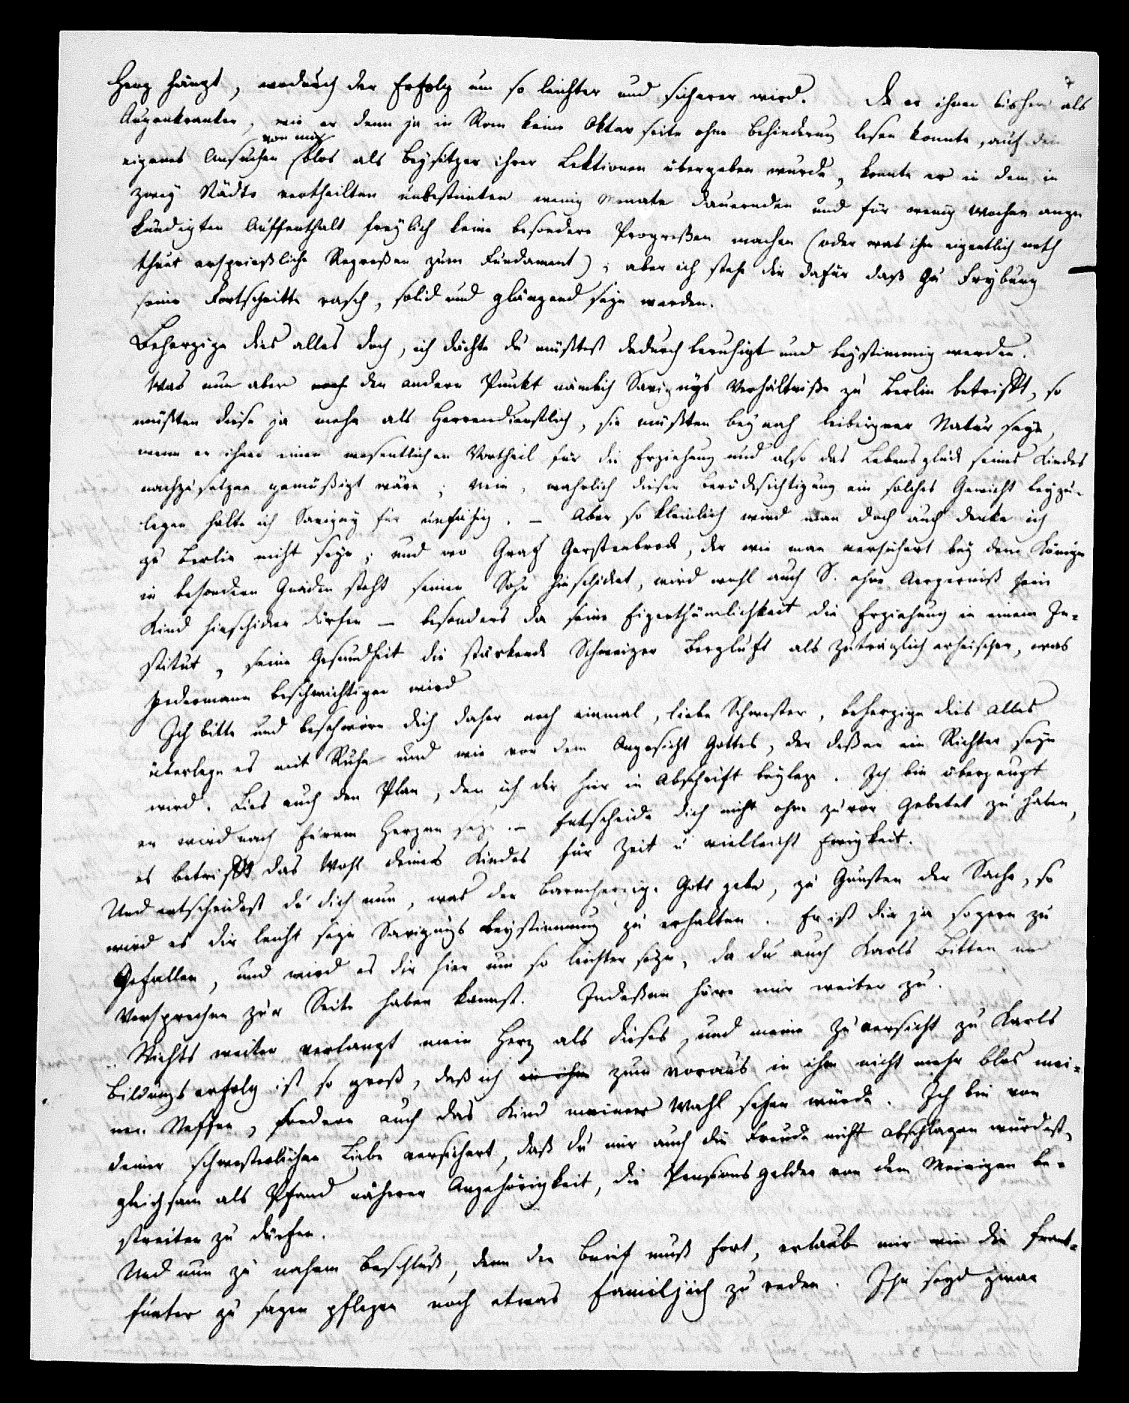 Herz hängt, wodurch der Erfolg um so leichter und sicherer wird. Da er ihnen bisher als
Augenkranker, wie er denn ja in Rom keine Oktavseite ohne Behinderung lesen konnte, auf dein
von mir
eigenes Ansuchen blos als Beysitzer ihrer Lektionen übergeben wurde, konnte er in dem in
zwey Städte vertheilten unbestimten wenig Monate dauernden und für wenig Wochen ange
kündigten Auffenthalt freylich keine besondere Progreßen machen (oder was ihm eigentlich noth
thut ersprießliche Regreßen zum Fundament); aber ich stehe dir dafür daß zu Fryburg
seine Fortschritte rasch, solid und glänzend seyn werden.
Beherzige dies alles doch, ich dächte du müßtest dadurch beruhigt und beystimmig werden.
Was nun aber noch den andern Punkt nämlich Savignys Verhältniße zu Berlin betrifft, so
müßten diese ja mehr als Herrendienstlich, sie müßten beynah leibeigner Natur seyn,
wenn er ihnen einen wesentlichen Vortheil für die Erziehung und also das Lebensglück seines Kindes
nachzusetzen gemüßigt wäre; Nein, wahrlich dieser Berücksichtigung ein solches Gewicht beyzu-
legen halte ich Savigny für unfähig. – Aber so kleinlich wird man doch auch denke ich
zu Berlin nicht seyn; und wo Graf Gerstenbrock, der wie man versichert bey dem Könige
in besondern Gnaden steht seinen Sohn hinschicket, wird wohl auch S. ohne Aergerniß sein
Kind hinschicken dürfen – besonders da seine Eigenthümlichkeit die Erziehung in einem In-
stitut, seine Gesundheit die stärkende Schweizer Bergluft als zuträglich erheischen, was
Jedermann beschwichtigen wird
Ich bitte und beschwöre dich daher noch einmal, liebe Schwester, beherzige dies alles
überlege es mit Ruhe und wie vor dem Angesicht Gottes, der deßen ein Richter seyn
wird. Lies auch den Plan, den ich dir hier in Abschrift beylege. Ich bin überzeugt
er wird nach Eurem Herzen seyn. – Entscheide dich nicht ohne zuvor gebetet zu haben,
es betrifft das Wohl deines Kindes für Zeit u vielleicht Ewigkeit.
Und entscheidest du dich nun, was der barmherzige Gott gebe, zu Gunsten der Sache, so
wird es dir leicht seyn Savignys Beystimmung zu erhalten. Er ist dir ja so gern zu
Gefallen, und wird es dir hier um so leichter seyn, da du auch Karls Bitten und
Versprechen zur Seite haben kannst. Indeßen höre mir weiter zu.
Nichts weiter verlangt mein Herz als dieses, und meine Zuversicht zu Karls
Bildungserfolg ist so groß, daß ich in ihm zum voraus in ihm nicht mehr blos mei-
nen Neffen, sondern auch das Kind meiner Wahl sehen würde. Ich bin von
deiner schwesterlichen Liebe versichert, daß du mir auch die Freude nicht abschlagen würdest,
gleichsam als Pfand näherer Angehörigkeit, die Pensionsgelder von dem Meinigen be-
streiten zu dürfen.
Und nun zu nahem Beschluß, denn der Brief muß fort, erlaube mir wie die Frank-
furter zu sagen pflegen noch etwas Familjich zu reden. Ihr seyd zwar